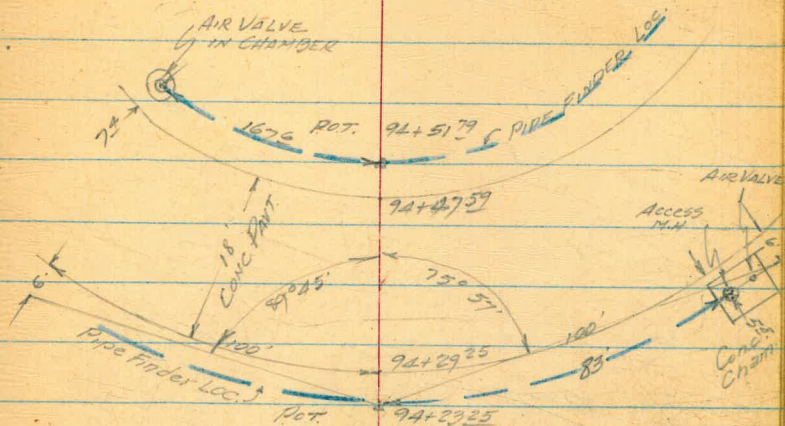 AIR VALVE
IN CHAMBER
PIPE FINDER LOC.
7⁴
1676
POT.
94+51⁷⁹
94+47⁵⁹
AIR VALVE
ACCESS
M.H
18'
CONC. PAVT.
6'
89°45'
75°57'
6'
100'
94+29²⁵
100'
5.8'
Conc.
Cham.
Pipe Finder Loc.
83'
POT.
94+23²⁵